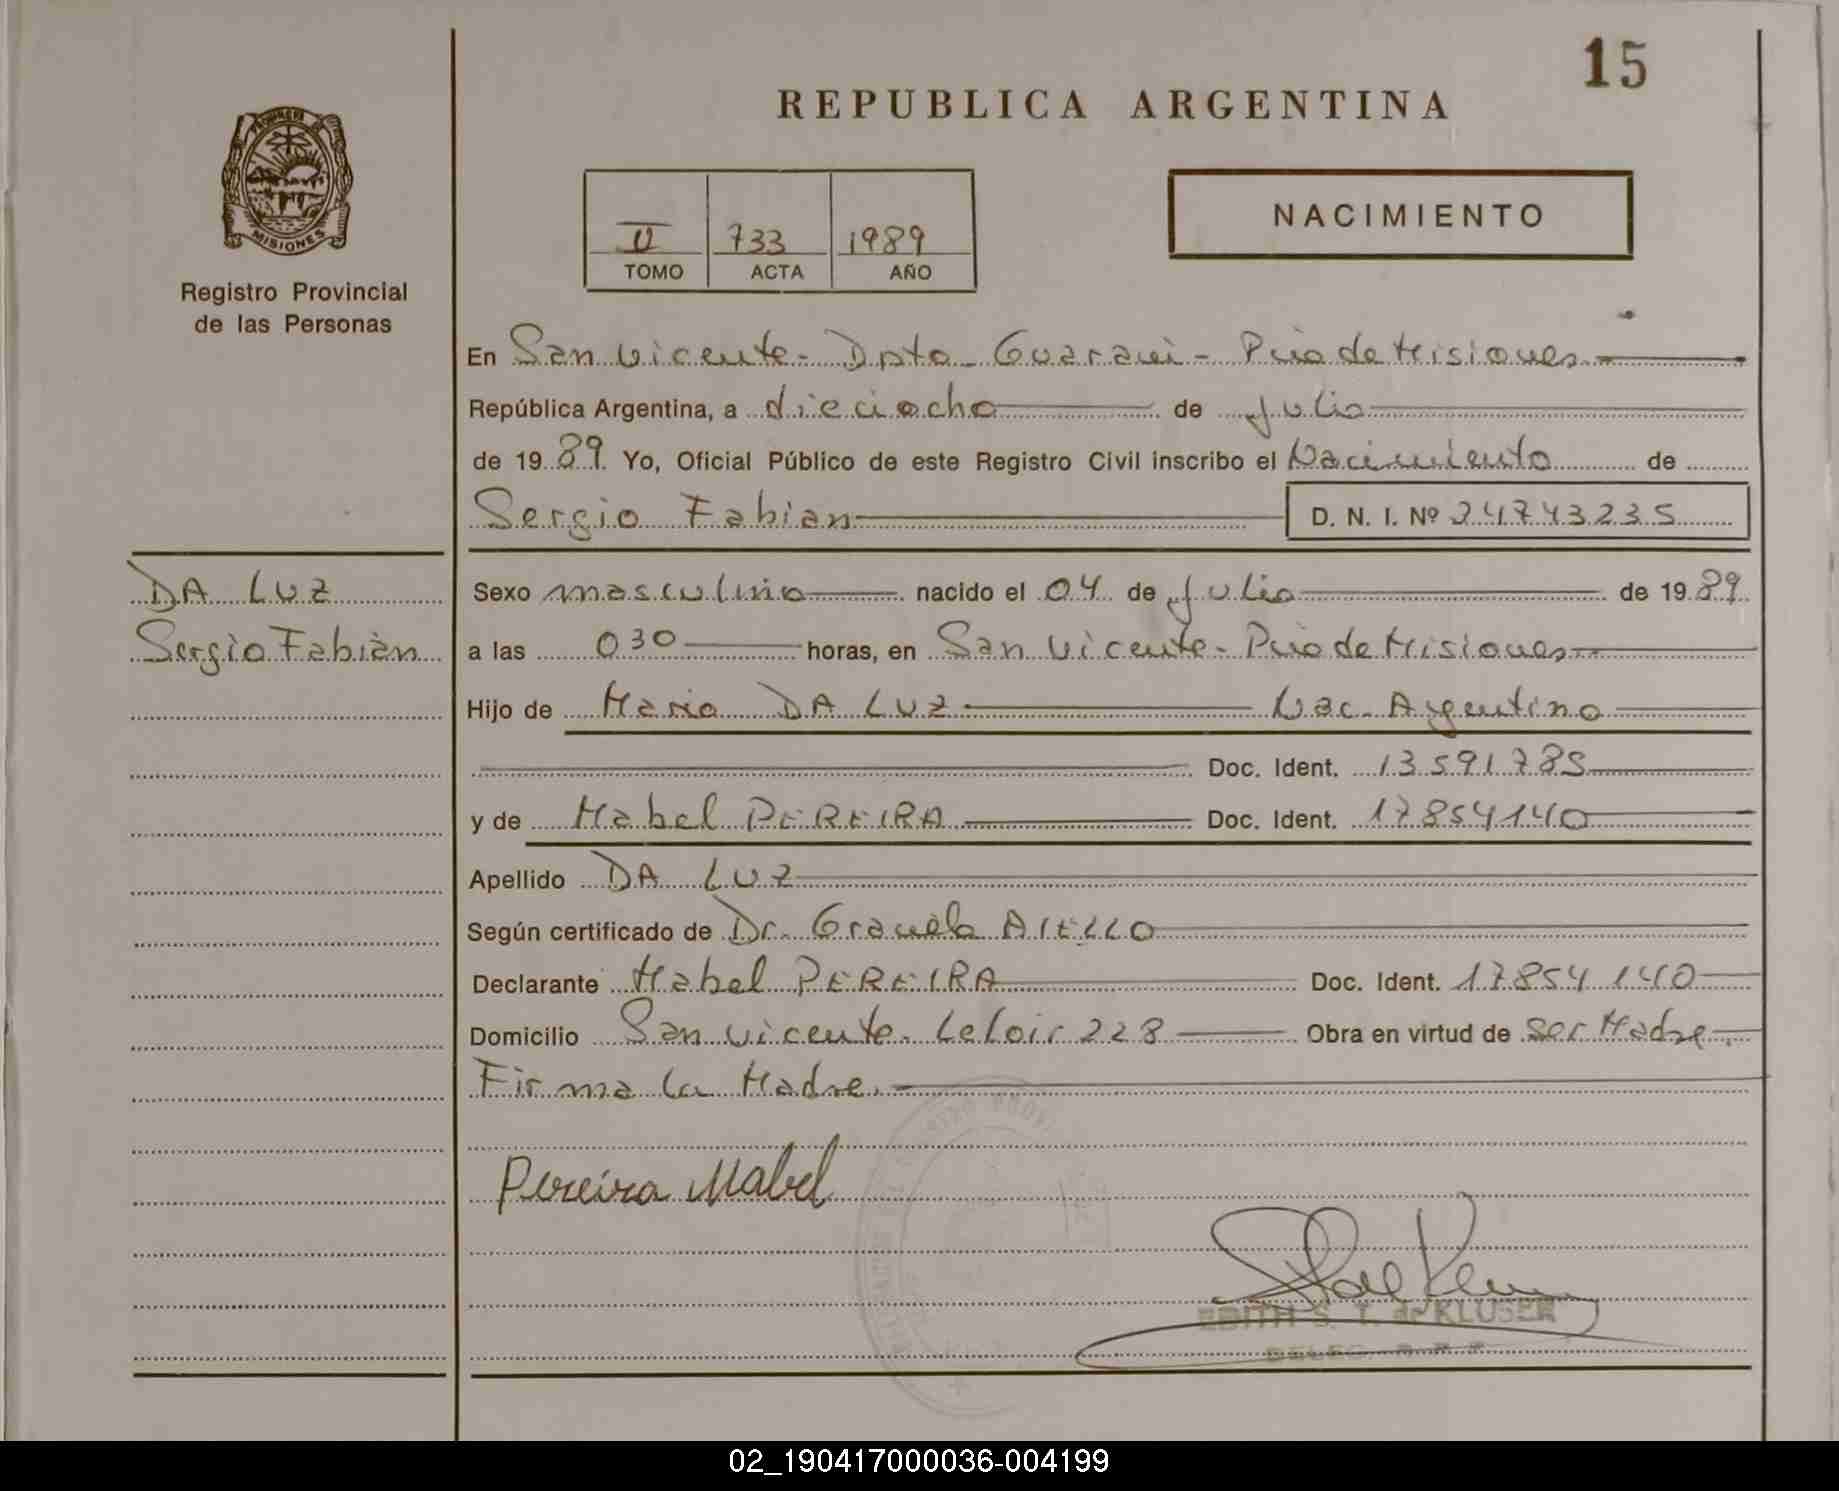 15
REPUBLICA ARGENTINA
NACIMIENTO
II 733 1989
TOMO ACTA AÑO
MISIONES
Registro Provincial
de las Personas
En San Vicente - Dpto - Guarani - Pcia de Misiones
República Argentina, a dieciocho de Julio
de 19 89. Yo, Oficial Público de este Registro Civil inscribo el Nacimiento de
Sergio Fabian D. N. I. Nº 34743235
DA LUZ
Sergio Fabián
Sexo masculino nacido el 04 de Julio de 19 89
a las 030 horas, en San Vicente - Pcia de Misiones
Hijo de Mario DA LUZ Nac. Argentino
Doc. Ident. 13591785
y de Mabel PEREIRA Doc. Ident. 17854140
Apellido DA LUZ
Según certificado de Dr. Graciela AIELLO
Declarante Mabel PEREIRA Doc. Ident. 17854140
Domicilio San Vicente. Leloir 228 Obra en virtud de ser Madre.
Firma la Madre.
Pereira Mabel
EDITH S. T. de KLUSER
02_190417000036-004199